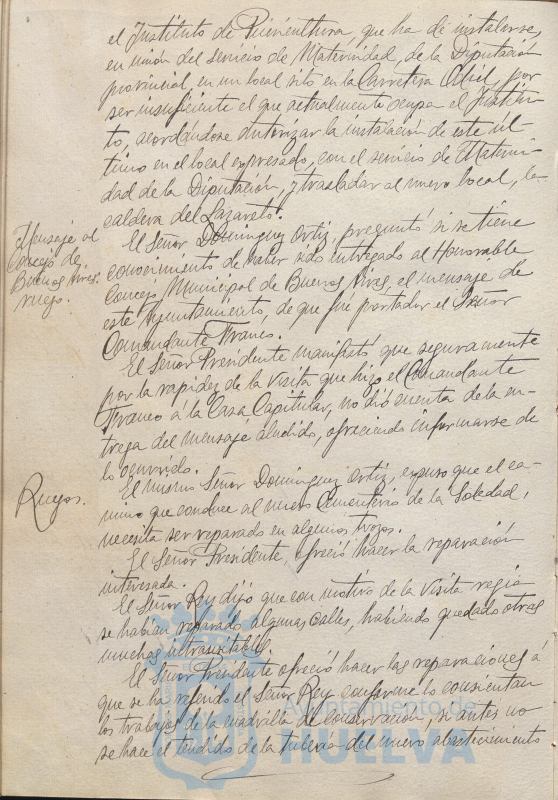 el Instituto de Puericultura, que ha de instalarse,
en unión del servicio de Maternidad, de la Diputación
provincial, en un local sito en la Carretera Odiel, por
ser insuficiente el que actualmente ocupa el Institu-
to, acordándose autorizar la instalación de este úl-
timo en el local expresado, con el servicio de Materni-
dad de la Diputación, y trasladar al nuevo local, la
caldera del Lazareto.
Mensaje al
Concejo de
Buenos Aires.
ruego.
El Señor Domínguez Ortiz, preguntó si se tiene
conocimiento de haber sido entregado al Honorable
Concejo Municipal de Buenos Aires, el mensaje de
este Ayuntamiento, de que fué portador el Señor
Comandante Franco.
El Señor Presidente manifestó que seguramente
por la rapidez de la visita que hizo el Comandante
Franco a la Casa Capitular, no dió cuenta de la en-
trega del mensaje aludido, ofreciendo informarse de
lo ocurrido.
Ruegos.
El mismo Señor Domínguez Ortiz, expuso que el ca-
mino que conduce al nuevo Cementerio de la Soledad,
necesita ser reparado en algunos trozos.
El Señor Presidente, ofreció hacer la reparación
interesada.
El Señor Rey dijo que con motivo de la visita regia
se habían reparado algunas calles, habiendo quedado otras
muchas intransitables.
El Señor Presidente ofreció hacer las reparaciones á
que se ha referido el Señor Rey conforme lo consientan
los trabajos de la cuadrilla de conservación, si antes no
se hace el tendido de la tubería del nuevo abastecimiento
Ayuntamiento de
HUELVA